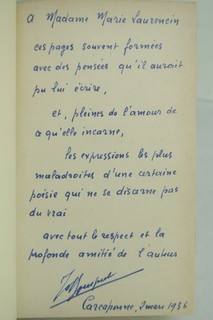 à Madame Marie Laurencin
ces pages souvent formées
avec des pensées qu'il aurait
pu lui écrire,
et, pleines de l'amour de
ce qu'elle incarne,
les expressions les plus
maladroites d'une certaine
poésie qui ne se disarne pas
du vrai
avec tout le respect et la
profonde amitié de l'auteur
Carcassonne, 2 mars 1956